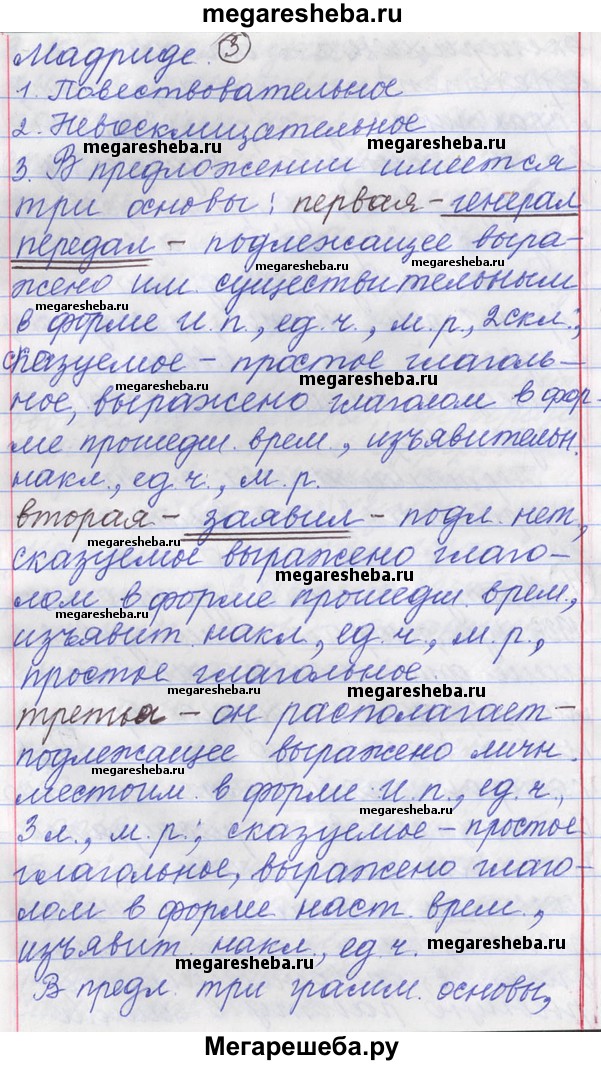 megaresheba.ru megaresheba.ru
Мадриде. 3
1. Повествовательное
2. Невосклицательное
megaresheba.ru megaresheba.ru
3. В предложении имеется
три основы: первая – генерал
передал – подлежащее выра-
megaresheba.ru megaresheba.ru
жено им. существительным
megaresheba.ru
в форме И.п., ед.ч., м.р., 2скл.;
сказуемое – простое глаголь-
megaresheba.ru megaresheba.ru
ное, выражено глаголом в фор-
ме прошедш. врем., изъявительн.
накл., ед.ч., м.р.
вторая – заявил – подл. нет,
сказуемое выражено глаго-
megaresheba.ru
лом в форме прошедш. врем.,
изъявит. накл., ед.ч., м.р.,
простое глагольное.
megaresheba.ru megaresheba.ru
третья – он располагает –
подлежащее выражено личн.
megaresheba.ru
местоим. в форме И.п., ед.ч.,
megaresheba.ru
3 л., м.р.; сказуемое – простое
глагольное, выражено глаго-
лом в форме наст. врем.,
изъявит. накл., ед.ч.
megaresheba.ru
megaresheba.ru
В предл. три грамм. основы,
megaresheba.ru megaresheba.ru
Мегарешеба.ру